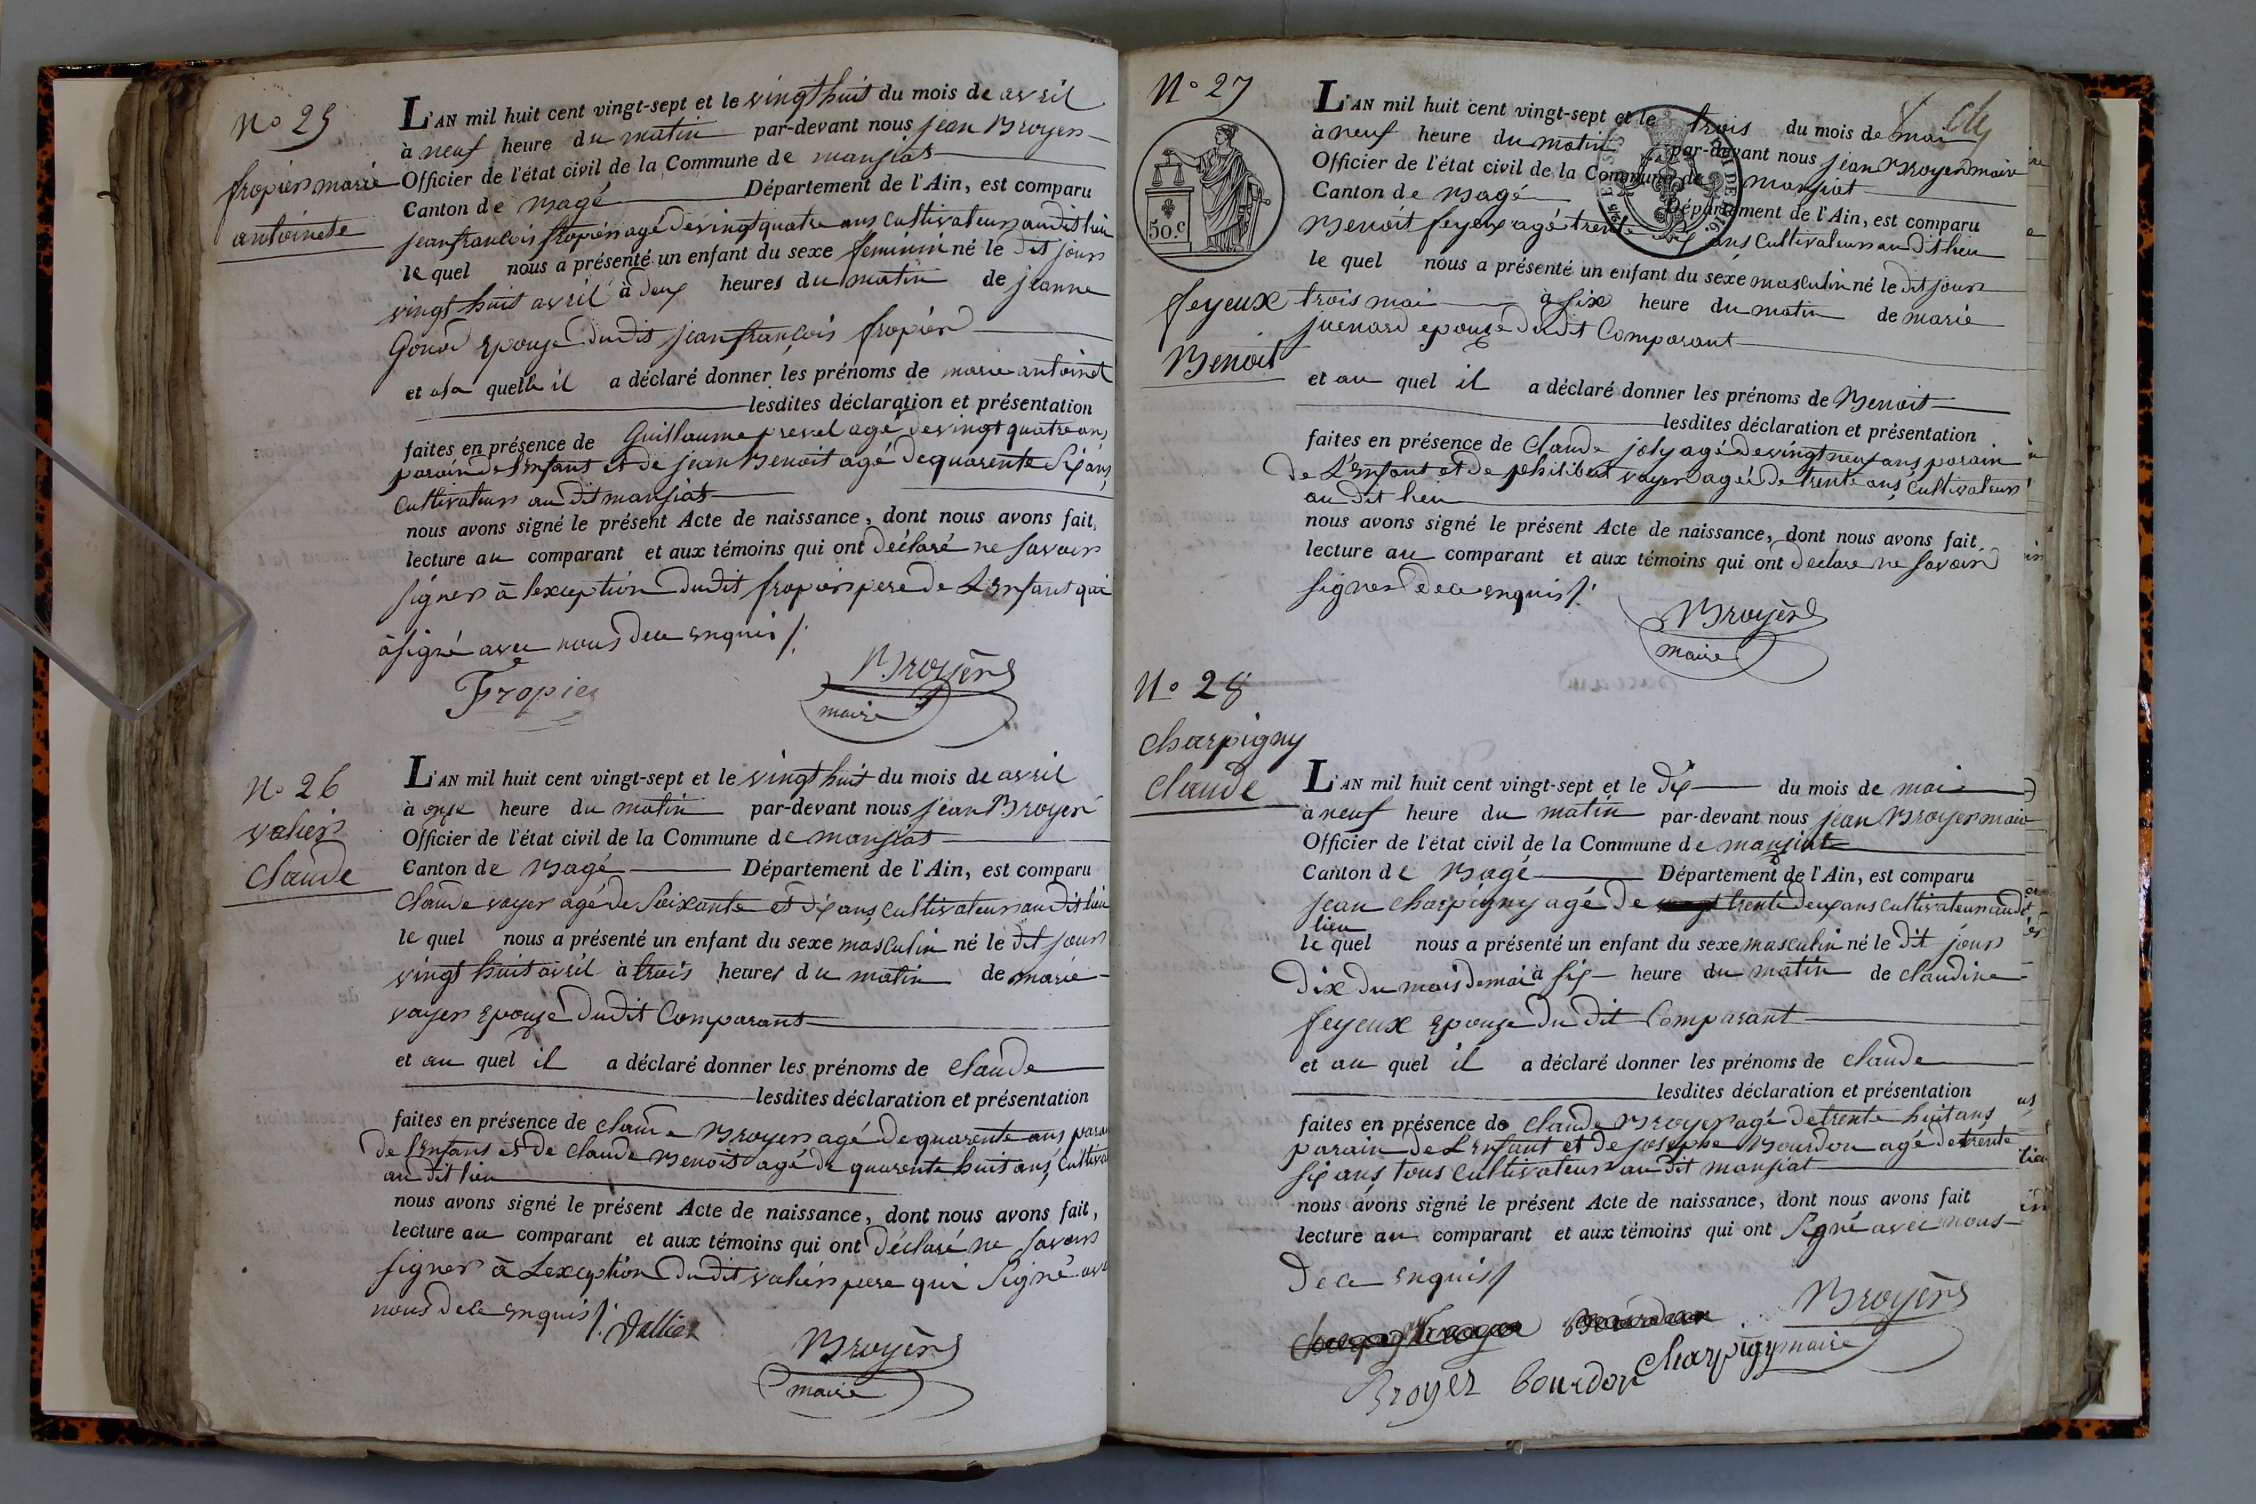 N° 25
fropier marie
antoinete
L'AN mil huit cent vingt-sept et le vingt huit du mois de avril
à neuf heure du matin par-devant nous jean Broyer
Officier de l'état civil de la Commune de mansiat
Canton de Bagé Département de l'Ain, est comparu
jean francois fropier agé de vingt quatre ans cultivateur au dit lieu
le quel nous a présenté un enfant du sexe feminin né le dit jour
vingt huit avril à deux heures du matin de jeanne
Gonod epouze du dit jean françois fropier
et a la quelle il a déclaré donner les prénoms de marie antoinet
lesdites déclaration et présentation
faites en présence de Guillaume prevel agé de vingt quatre ans
parain de l'enfant et de jean Benoit agé de quarente six ans
cultivateurs au dit mansiat
nous avons signé le présent Acte de naissance, dont nous avons fait,
lecture au comparant et aux témoins qui ont déclaré ne savoir
signer à lexception du dit fropier pere de L'Enfant qui
à signé avec nous de ce enquis /.
Fropier
Broyer
maire
N° 26
valier
Claude
L'AN mil huit cent vingt-sept et le vingt huit du mois de avril
à onze heure du matin par-devant nous jean Broyer
Officier de l'état civil de la Commune de mansiat
Canton de Bagé Département de l'Ain, est comparu
Claude voyer agé de soixante et dix ans cultivateur au dit lieu
le quel nous a présenté un enfant du sexe masculin né le dit jour
vingt huit avril à trois heures du matin de marie
voyer epouze du dit Comparant
et au quel il a déclaré donner les prénoms de Claude
lesdites déclaration et présentation
faites en présence de claude Broyer agé de quarente ans parai
de l'Enfant et de Claude Benoit agé de quarente huit ans, cultiva
au dit lieu
nous avons signé le présent Acte de naissance, dont nous avons fait,
lecture au comparant et aux témoins qui ont déclaré ne savoir
signer à L'exception du dit valier pere qui signé ave
nous de ce enquis /.
Vallier
Broyer
maire
N° 27
50.c
feyeux
Benoit
L'AN mil huit cent vingt-sept et le trois du mois de mai
à neuf heure du matin par-devant nous jean Broyer maire
Officier de l'état civil de la Commune de mansiat
Canton de Bagé Département de l'Ain, est comparu
Benoit feyeux agé trente ans Cultivateur au dit lieu
le quel nous a présenté un enfant du sexe masculin né le dit jour
trois mai à six heure du matin de marie
juenard epouze du dit Comparant
et au quel il a déclaré donner les prénoms de Benoit
lesdites déclaration et présentation
faites en présence de Claude joly agé de vingt neuf ans parain
de L'Enfant et de philibert voyer agé de trente ans, cultivateurs
au dit lieu
nous avons signé le présent Acte de naissance, dont nous avons fait,
lecture au comparant et aux témoins qui ont declare ne savoir
signer de ce enquis /.
Broyer
maire
N° 28
Charpigny
Claude
L'AN mil huit cent vingt-sept et le dix du mois de mai
à neuf heure du matin par-devant nous jean Broyer maire
Officier de l'état civil de la Commune de mansiat
Canton de Bagé Département de l'Ain, est comparu
jean Charpigny agé de vingt trente deux ans cultivateur au dit
lieu
le quel nous a présenté un enfant du sexe masculin né le dit jour
dix du mois de mai à six heure du matin de claudine
feyeux epouze du dit Comparant
et au quel il a déclaré donner les prénoms de claude
lesdites déclaration et présentation
faites en présence de Claude Broyer agé de trente huit ans
parain de L'enfant et de josephe Bourdon agé de trente
six ans tous cultivateurs au dit mansiat
nous avons signé le présent Acte de naissance, dont nous avons fait
lecture au comparant et aux témoins qui ont signé avec nous
de ce enquis /
Broyer
maire
Broyer bourdon Charpigy